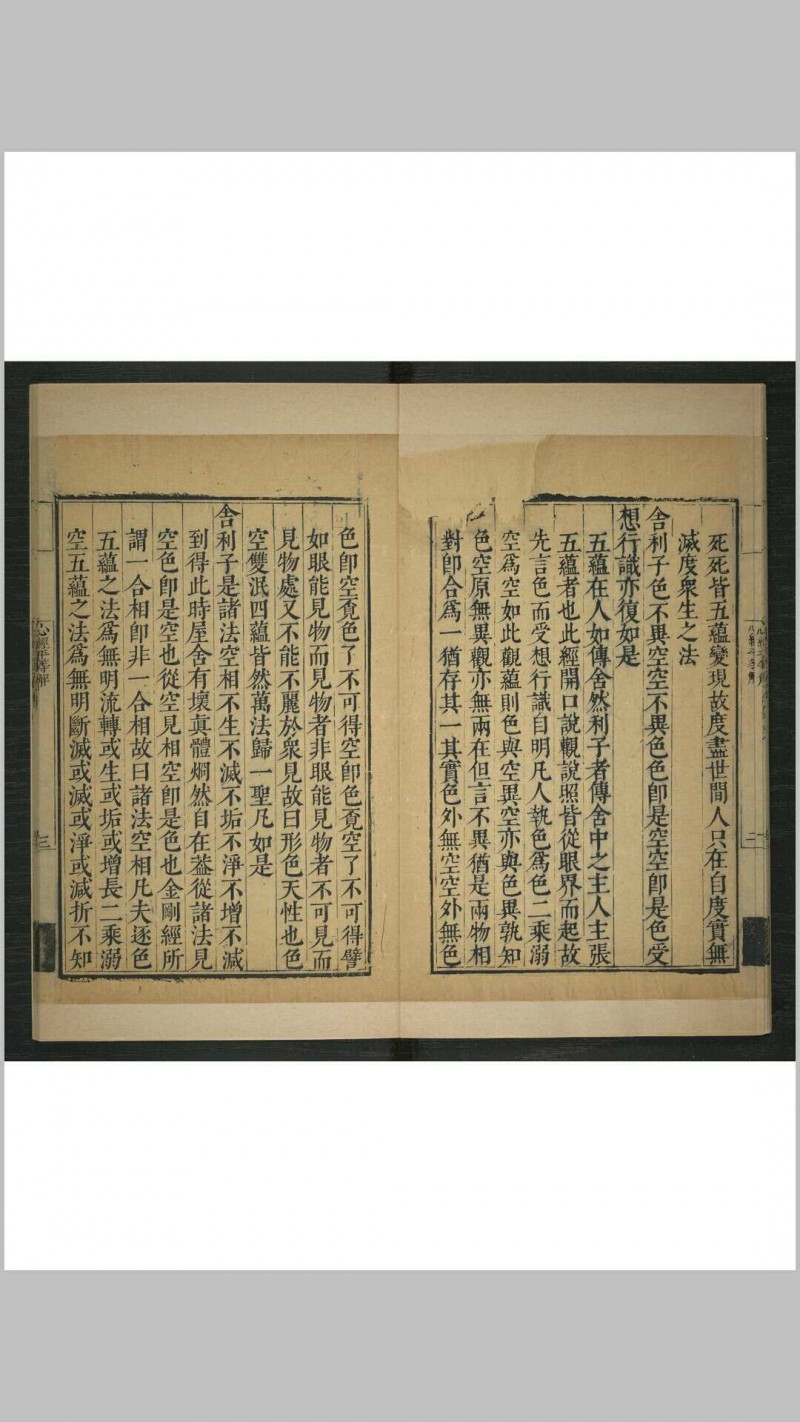 死死皆五蘊變現故度盡世間人只在自度實無
滅度衆生之法
舍利子色不異空空不異色色卽是空空卽是色受
想行識亦復如是
五蘊在人如傳舍然利子者傳舍中之主人主張
五蘊者也此經開口說觀說照皆從眼界而起故
先言色而受想行識自明凡人執色爲色二乘溺
空爲空如此觀蘊則色與空異空亦與色異孰知
色空原無異觀亦無兩在但言不異猶是兩物相
對卽合爲一猶存其一其實色外無空空外無色
色卽空覔色了不可得空卽色覔空了不可得譬
如眼能見物而見物者非眼能見物者不可見而
見物處又不能不麗於衆見故曰形色天性也色
空雙泯四蘊皆然萬法歸一聖凡如是
舍利子是諸法空相不生不滅不垢不淨不增不減
到得此時屋舍有壞眞體烱然自在葢從諸法見
空色卽是空也從空見相空卽是色也金剛經所
謂一合相卽非一合相故曰諸法空相凡夫逐色
五蘊之法爲無明流轉或生或垢或增長二乘溺
空五蘊之法爲無明斷滅或滅或淨或減折不知
二
三